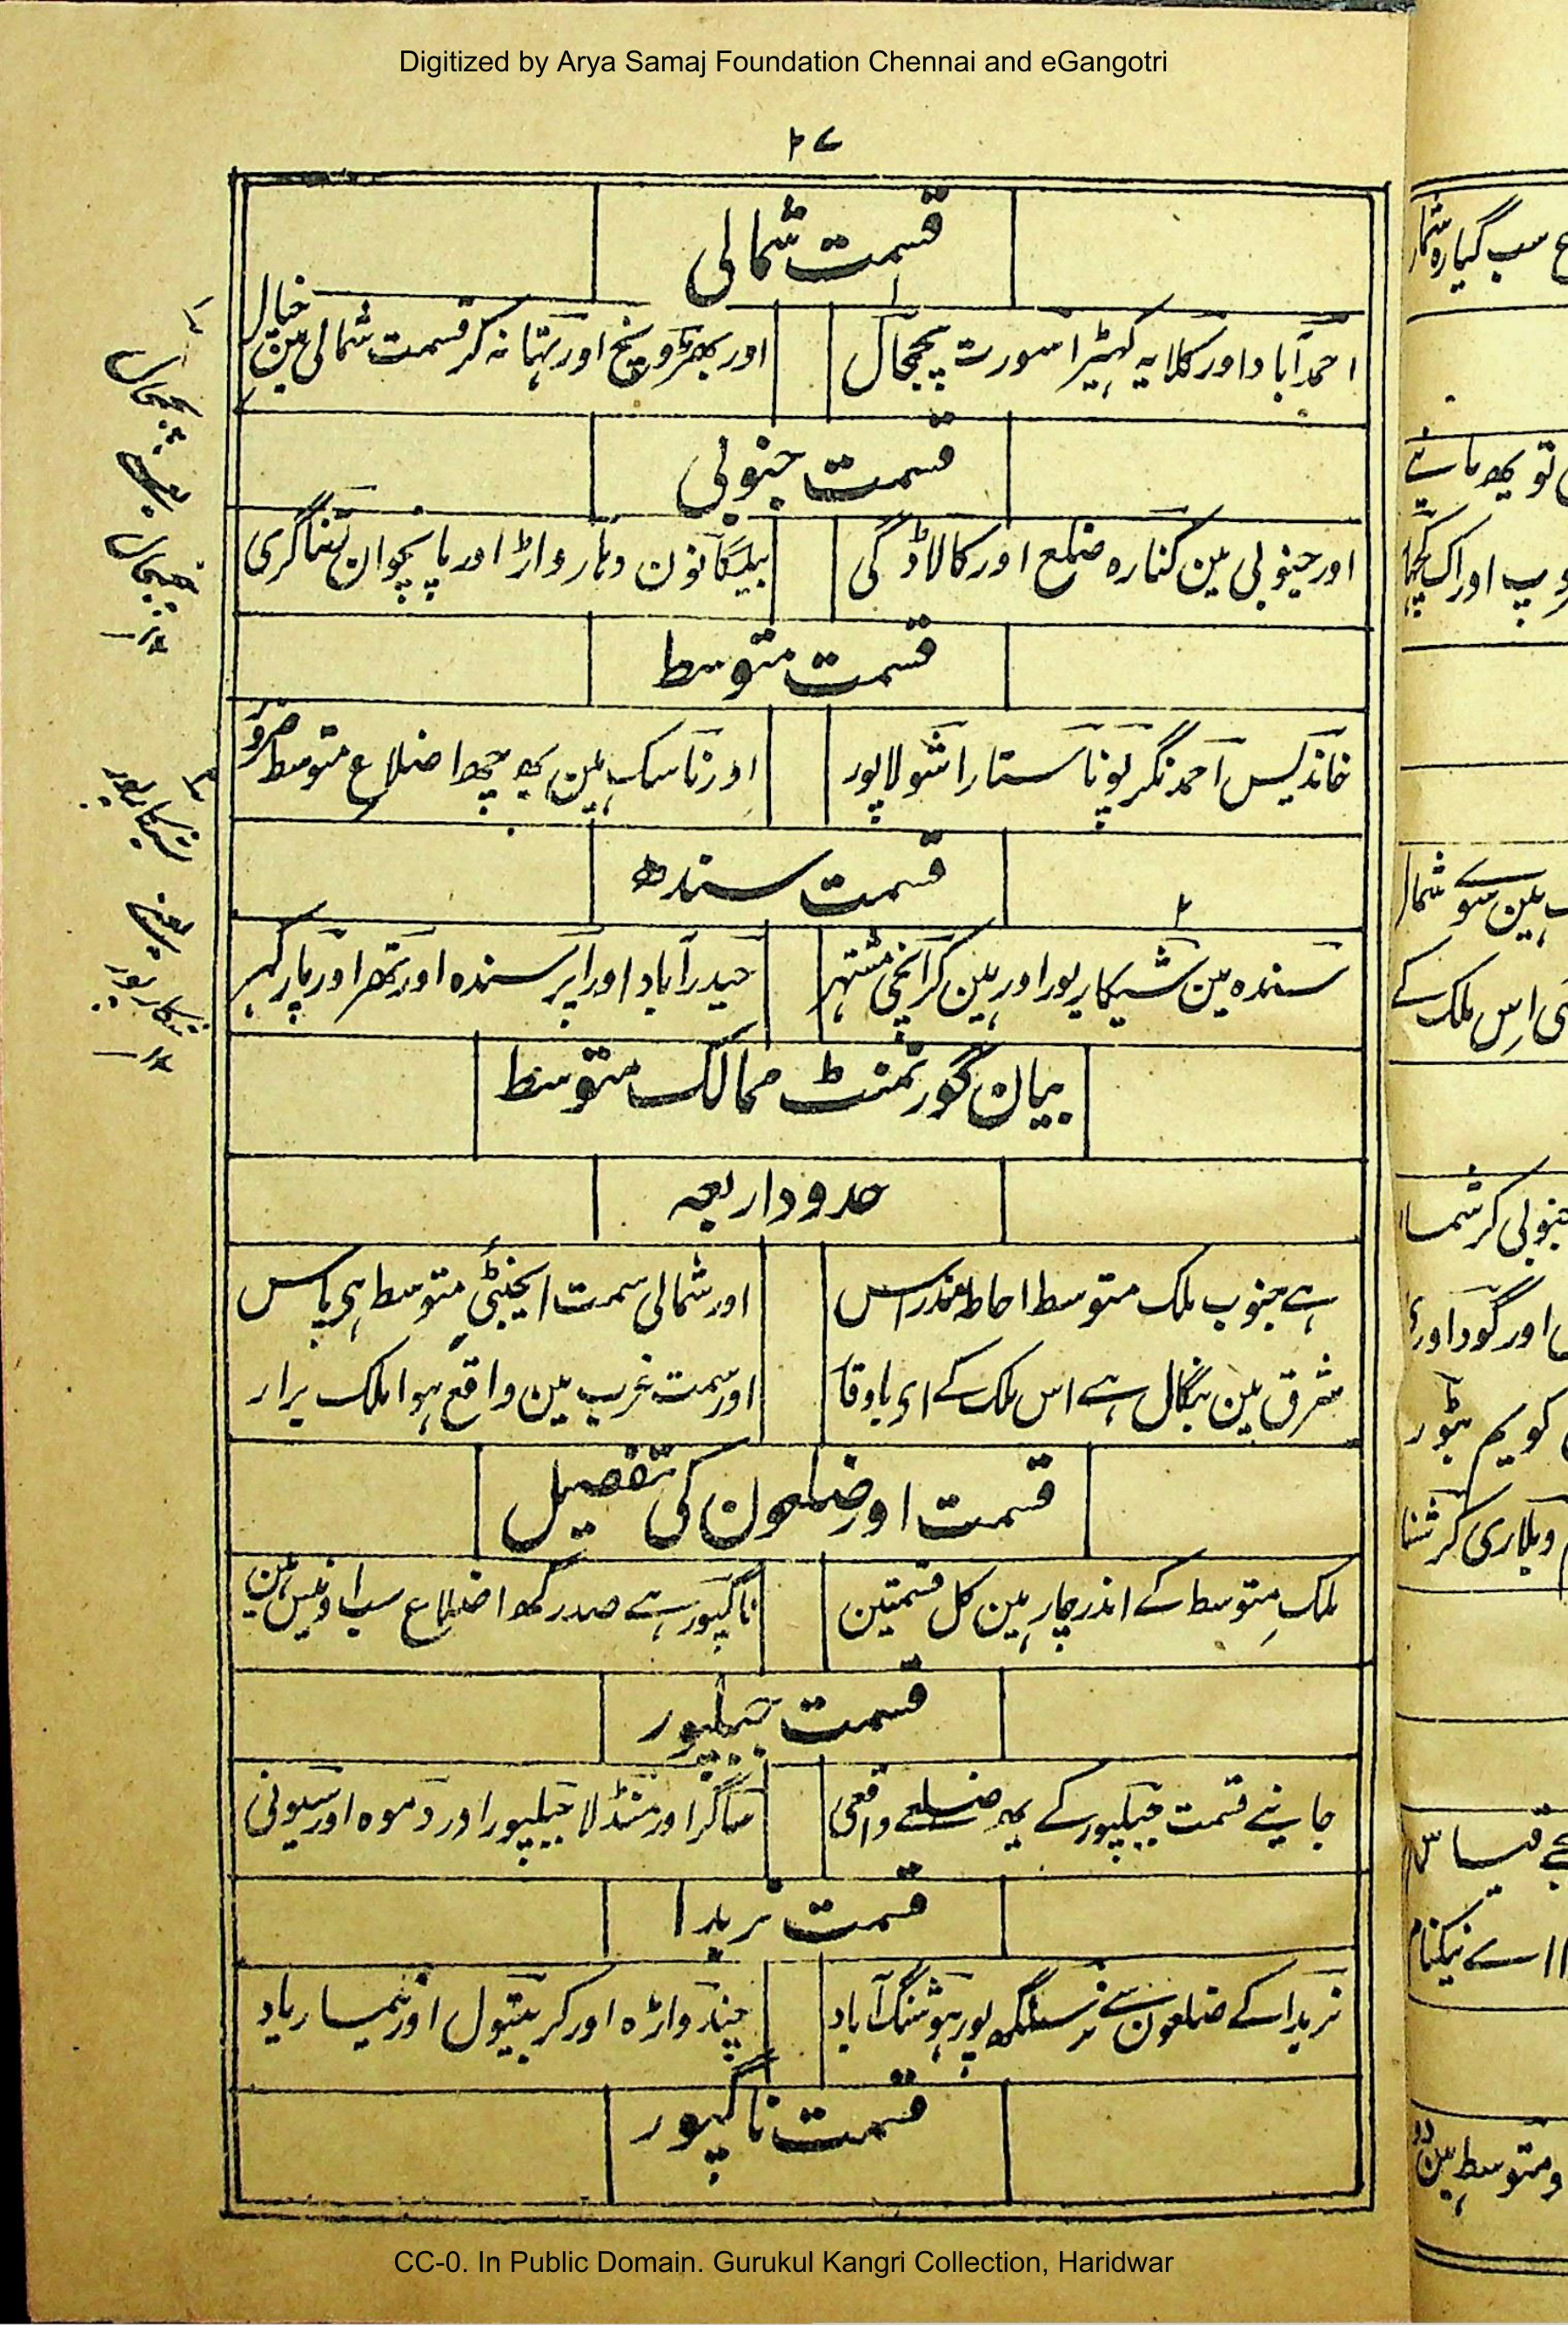 Digitized by Arya Samaj Foundation Chennai and eGangotri
۲۷
قسمت شمالی
احمدآباد اور کلابہ کہیڑا سورت پنچمحال
اور بھڑوچ اور تہانہ کر قسمت شمالی مین خیال
قسمت جنوبی
اور جنوبی مین کنارہ ضلع اور کالاڈگی
بیلگانون دہارواڑ اور پانچوان رتناگری
قسمت متوسط
خاندیس احمدنگر پونا ستارا شولاپور
اور ناسک ہین یہ چھ اضلاع متوسط ضرور
قسمت سندھ
۲
سندہ مین شیکارپور اور ہین کرانچی مشتہر
حیدرآباد اور اپر سندہ اور تھر اور پارکہر
بیان گورنمنٹ ممالک متوسط
حدود اربعہ
ہے جنوب ملک متوسط احاطہ مندراس
اور شمالی سمت ایجنٹی متوسط ہی پاس
شرق مین بنگال ہے اس ملک کے ای باوقار
اور سمت غرب مین واقع ہوا ملک برار
قسمت اور ضلعون کی تفصیل
ملک متوسط کے اندر چار ہین کل قسمتین
ناگپور ہے صدر کھ اضلاع سب اونیس ہین
قسمت جبلپور
جانیے قسمت جبلپور کے یہ ضلعے واقعی
ساگر اور منڈلا جبلپور اور دموہ اور سیونی
قسمت نربدا
نربدا کے ضلعون سے نرسنگھ پور ہوشنگ آباد
چندواڑہ اور کر بیتول اور نمیسار یاد
قسمت ناگپور
۱
پنچمحال
یعنے
پنجمحال
۱۲
۲
شیکارپور
یعنے
شکارپور
۱۲
CC-0. In Public Domain. Gurukul Kangri Collection, Haridwar